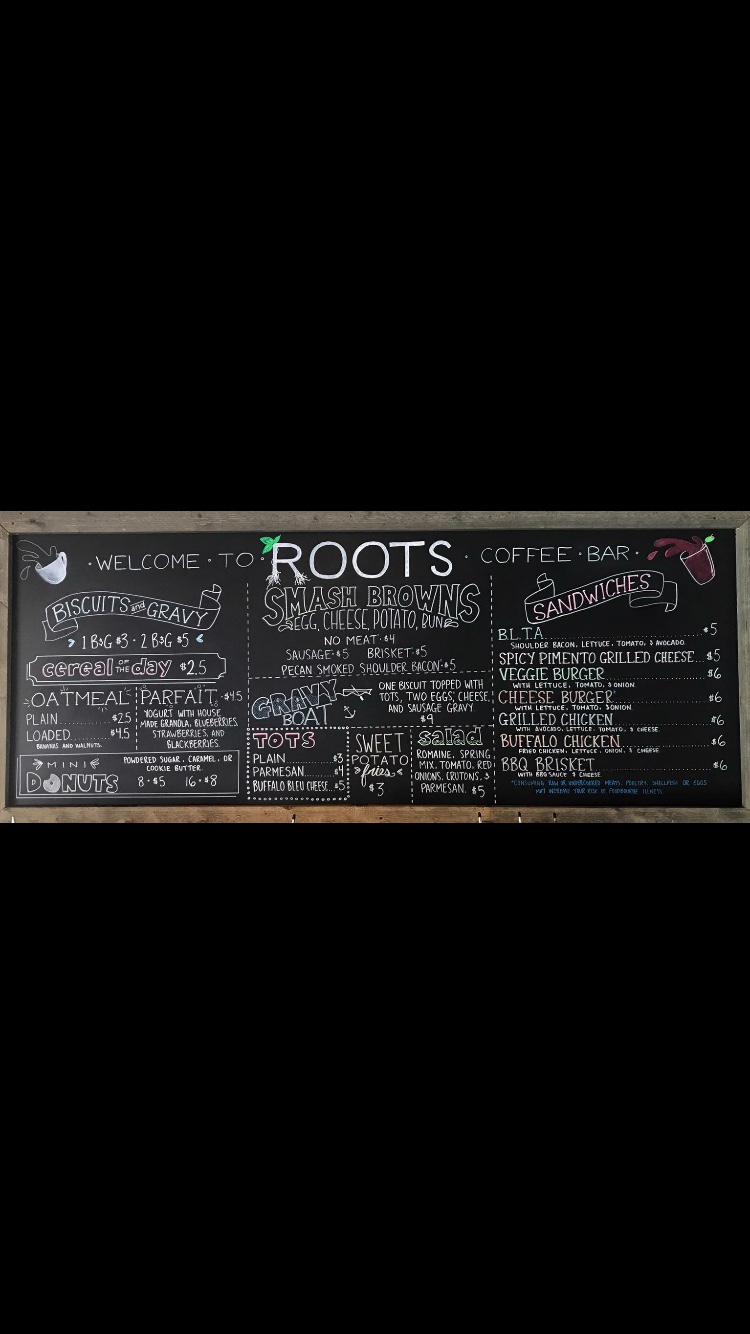 ·WELCOME·TO·ROOTS·COFFEE·BAR·
BISCUITS and GRAVY
1 B&G $3 · 2 B&G $5
cereal OF THE day $2.5
OATMEAL
PLAIN $2.5
LOADED $4.5
BANANAS AND WALNUTS.
PARFAIT ·$4.5
YOGURT WITH HOUSE
MADE GRANOLA, BLUEBERRIES,
STRAWBERRIES, AND
BLACKBERRIES.
MINI
DONUTS
POWDERED SUGAR, CARAMEL, OR
COOKIE BUTTER.
8·$5 16·$8
SMASH BROWNS
EGG, CHEESE, POTATO, BUN
NO MEAT·$4
SAUSAGE·$5 BRISKET·$5
PECAN SMOKED SHOULDER BACON·$5
GRAVY
BOAT
ONE BISCUIT TOPPED WITH
TOTS, TWO EGGS*, CHEESE,
AND SAUSAGE GRAVY.
$9
TOTS
PLAIN $3
PARMESAN $4
BUFFALO BLEU CHEESE $5
SWEET
POTATO
fries
$3
salad
ROMAINE, SPRING
MIX, TOMATO, RED
ONIONS, CRUTONS, &
PARMESAN. $5
SANDWICHES
B.L.T.A. $5
SHOULDER BACON, LETTUCE, TOMATO, & AVOCADO.
SPICY PIMENTO GRILLED CHEESE $5
VEGGIE BURGER $6
WITH LETTUCE, TOMATO, & ONION.
CHEESE BURGER* $6
WITH LETTUCE, TOMATO, & ONION.
GRILLED CHICKEN $6
WITH AVOCADO, LETTUCE, TOMATO, & CHEESE.
BUFFALO CHICKEN $6
FRIED CHICKEN, LETTUCE, ONION, & CHEESE.
BBQ BRISKET $6
WITH BBQ SAUCE & CHEESE.
*CONSUMING RAW OR UNDERCOOKED MEATS, POULTRY, SHELLFISH OR EGGS
MAY INCREASE YOUR RISK OF FOODBOURNE ILLNESS.